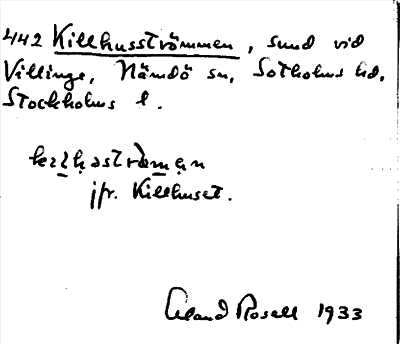 442 Killhusströmmen, sund vid
Villinge, Nämdö sn, Sotholms hd,
Stockholms l.
jfr. Killhuset.
Erland Rosell 1933